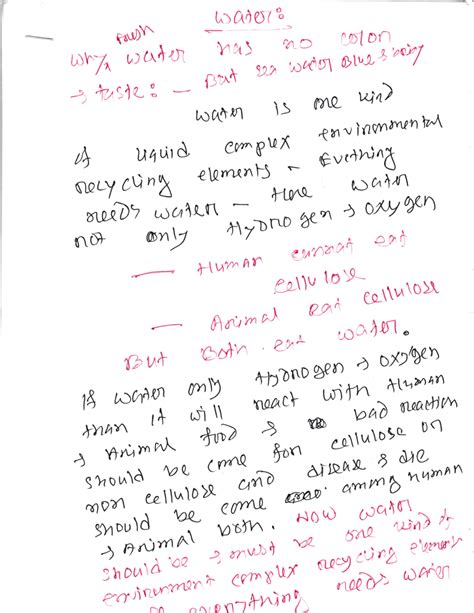 Water:
fresh
Why water has no color
→ taste: - But sea water Blue & salty
Water is one kind
of liquid complex environmental
recycling elements - Evething
needs water - Here water
not only Hydrogen → oxygen
— Human cannot eat
cellulose
— Animal eat cellulose
But Both eat water.
If water only Hydrogen → oxygen
than it will react with Human
→ Animal food & bad reaction
should be come for cellulose or
non cellulose and disease & die
should be come among Human
→ Animal both. Now water
should be → must be one kind of
environment complex recycling elements
everything needs water